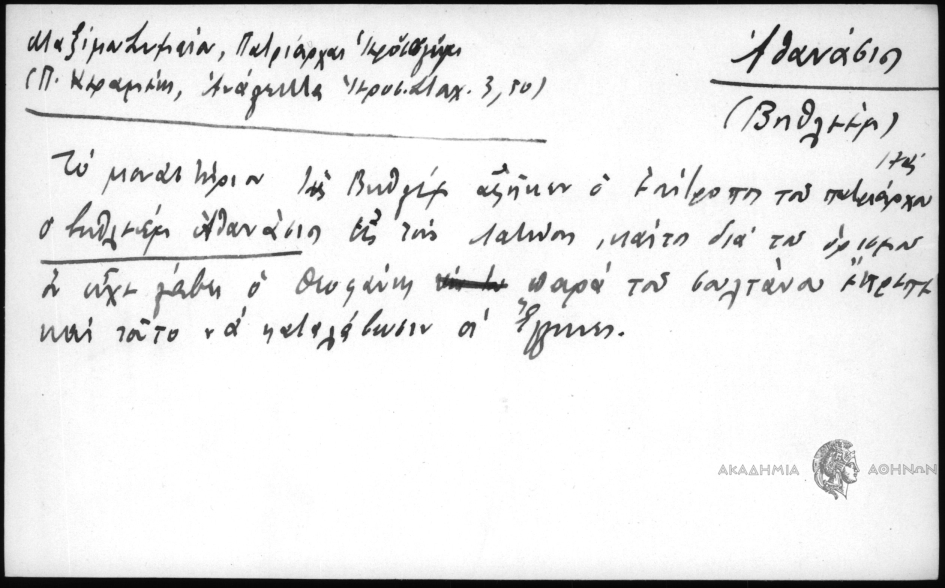 Μαξίμου Συμαίου, Πατριάρχαι Ἱεροσολύμων
(Π. Κεραμεύς, Ἀνάλεκτα Ἱεροσ. Σταχ. 3, 50)
Ἀθανάσιος
(Βηθλεέμ)
Τό μοναστήριον τῆς Βηθλεέμ ἀφῆκεν ὁ ἐπίτροπος τοῦ πατριάρχου
ὁ Βηθλεέμ Ἀθανάσιος εἰς τούς Λατίνους, καίτοι διά τοῦ ὁρισμοῦ
ὅν εἶχε λάβει ὁ Θεοφάνης παρά τοῦ σουλτάνου ἔπρεπε
καί τοῦτο νά καταλάβωσιν οἱ Ἕλληνες.
ΑΚΑΔΗΜΙΑ ΑΘΗΝΩΝ